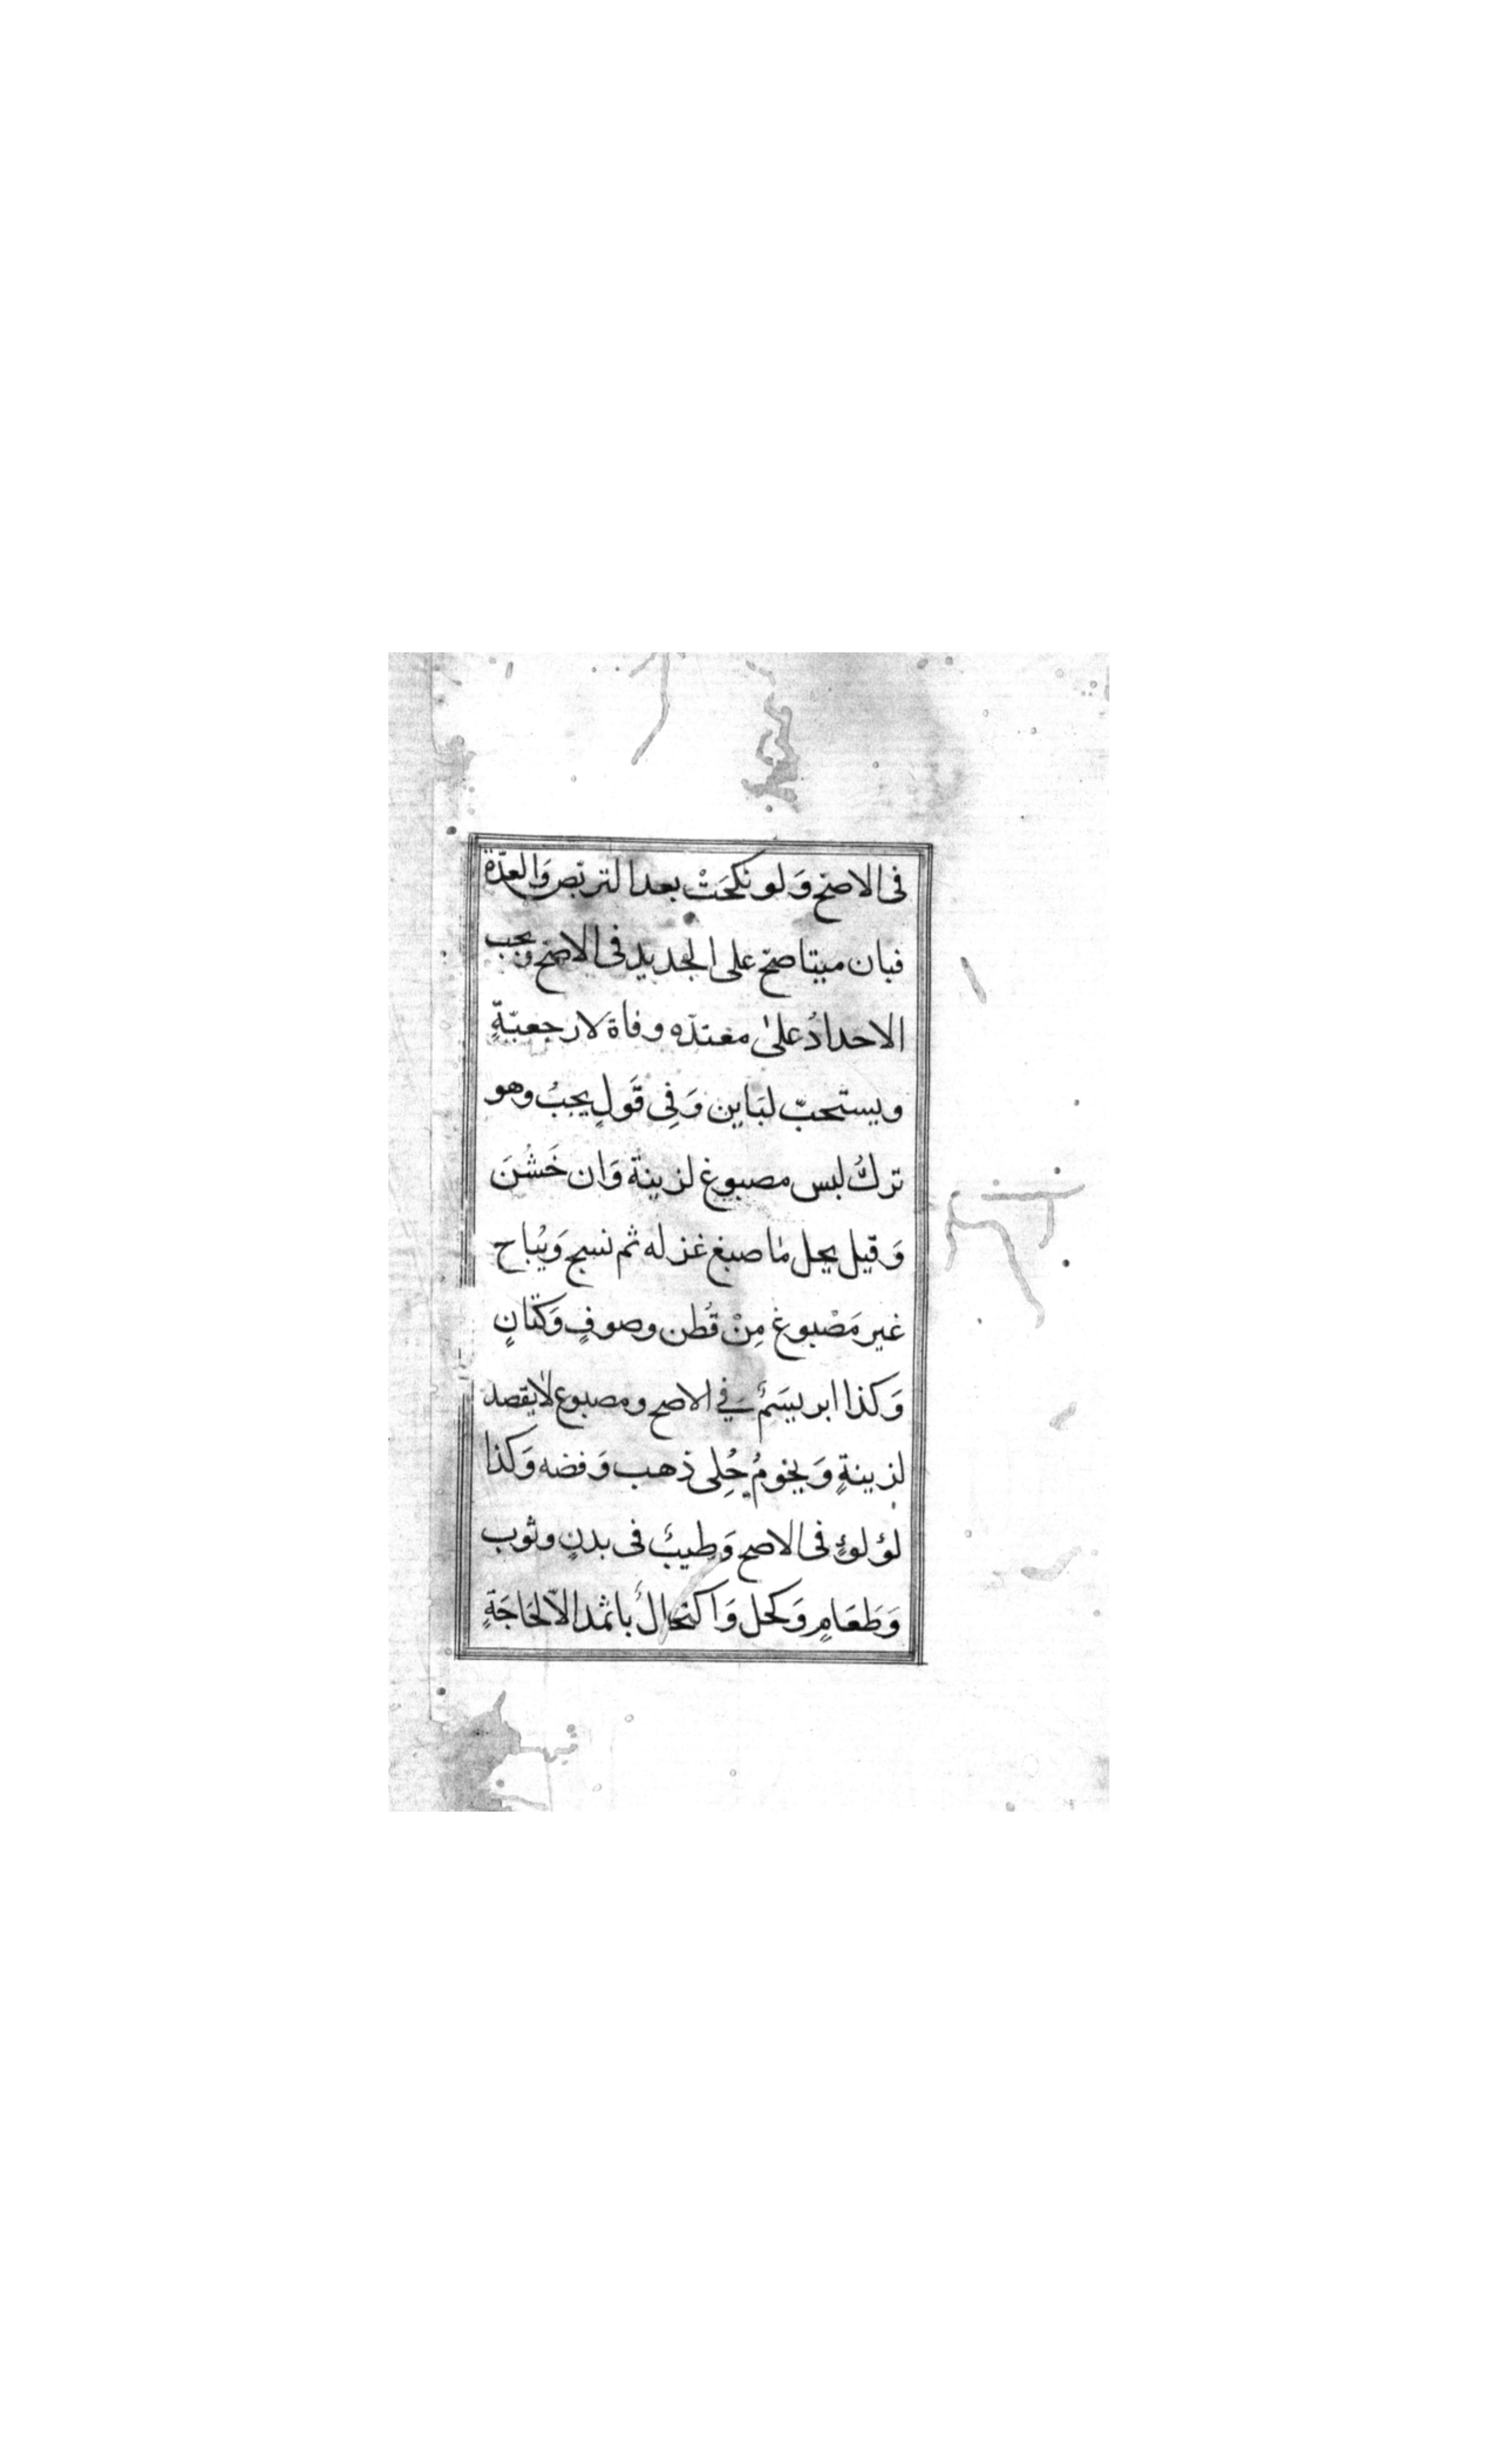 فى الاصَحّ وَلو نكحَتْ بعد التربّص وَالعدّة
فبان ميتا صحّ على الجديد فى الاصَحّ ويجب
الاحدادُ علىٰ معتدّه وفاة لا رجعيّةٍ
ويستحبّ لبَاين وَفِى قَولٍ يجبُ وهو
تركُ لبس مصبوغ لزينة وَان خَشُنَ
وَقيل يحل ما صبغ غزله ثم نسج وَيُباح
غير مَصْبوغ مِنْ قُطن وصوفٍ وَكتانٍ
وَكذا ابريسَمٌ في الاصح ومصبوغ لا يقصد
لزينةٍ وَيحرمُ حُلِى ذهب وَفضه وَكذا
لؤلوءٍ فى الاصح وَطِيبٌ فى بدنٍ وثوب
وَطَعَامٍ وَكحل وَاكتحالٌ باثمد الاّ لحَاجَةٍ